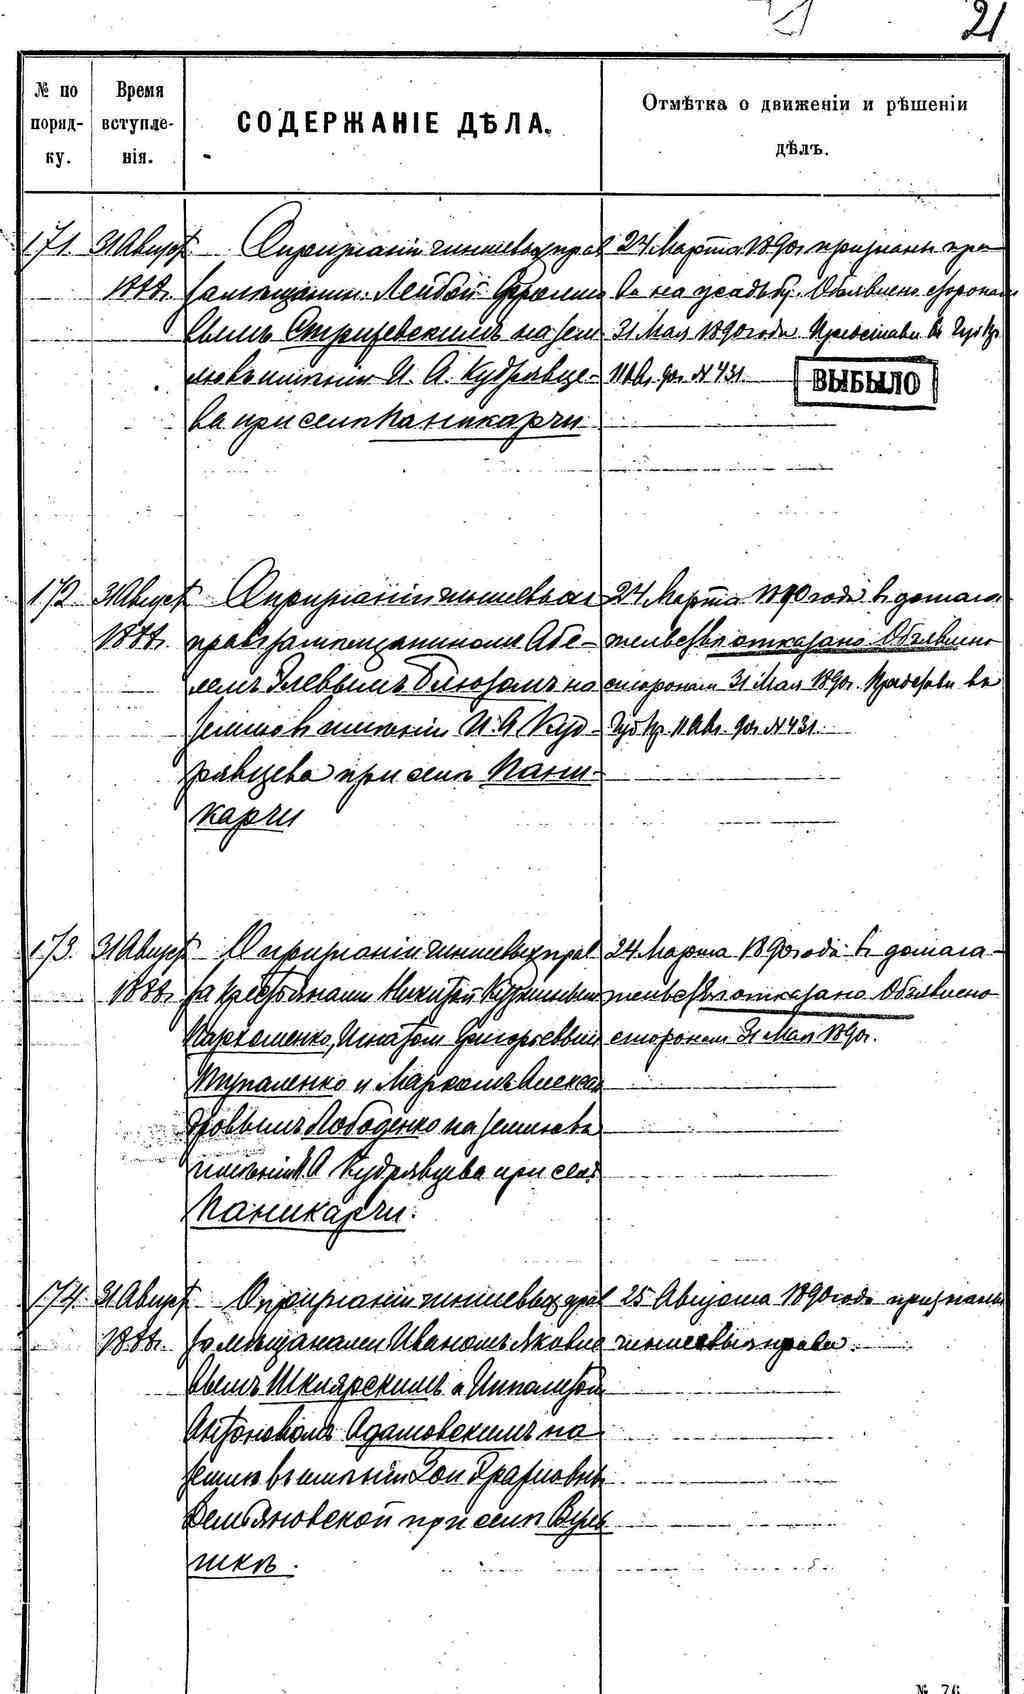 21
№ по поряд-ку.
Время вступле-нія.
СОДЕРЖАНІЕ ДѢЛА.
Отмѣтка о движеніи и рѣшеніи дѣлъ.
171.
31 Август
1888г.
О признаніи чиншевых прав
за мещанин. Лейбой
вымъ на зем
лю въ имѣніи И. А. Кудрявце-
ва при селѣ Паникарчи
24 Марта 1890г признаны пра
ва на усадьбу. Объявлено сторонам
31 Мая 1890 года. Представл. въ Губ. Пр.
11 Ав. 90г. № 431.
ВЫБЫЛО
172
31 Август
1888г.
О признаніи чиншевых
правъ за мещанином Абе-
лемъ на
землю въ имѣніи И. А. Куд-
рявцева при селѣ Пани-
карчи
24 Марта 1890 года въ домага
тельствѣ отказано Объявлено
сторонам 31 Мая 1890г. Представл. въ
Губ. Пр. 11 Авг. 90г. № 431.
173.
31 Август
1888г.
О признаніи чиншевых прав
за крестьянами Никитой
Пархоменко, Игнатом Григорьевым
Тупаленко и Маркомъ Алексан
дровымъ Лободенко на землю въ
имѣніи И. А. Кудрявцева при селѣ
Паникарчи.
24 Марта 1890 года въ домага-
тельствѣ отказано Объявлено
сторонам 31 Мая 1890г.
174.
31 Август
1888г.
О признаніи чиншевых прав
за мещанами Иваномъ Яковле
вымъ Шклярскимъ и Ипполитом
Антоновымъ Адамовскимъ на
землю въ имѣніи Зои
Демьяновской при селѣ
25 Августа 1890 года признаны
чиншевыя права.
№ 76